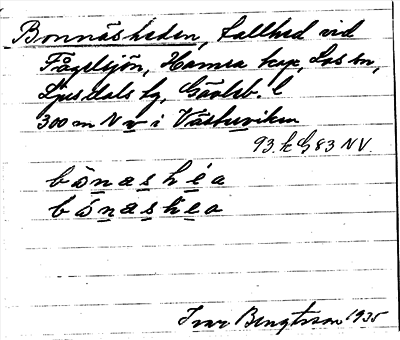 Bonnäsheden, tallhed vid
Fågelsjön, Hamra kap, Los sn,
Ljusdals tg, Gävleb. l
300 m N v i Västerviken
93. h G 83 NV.
bònashéa
bónashea
Ivar Bengtsson 1935